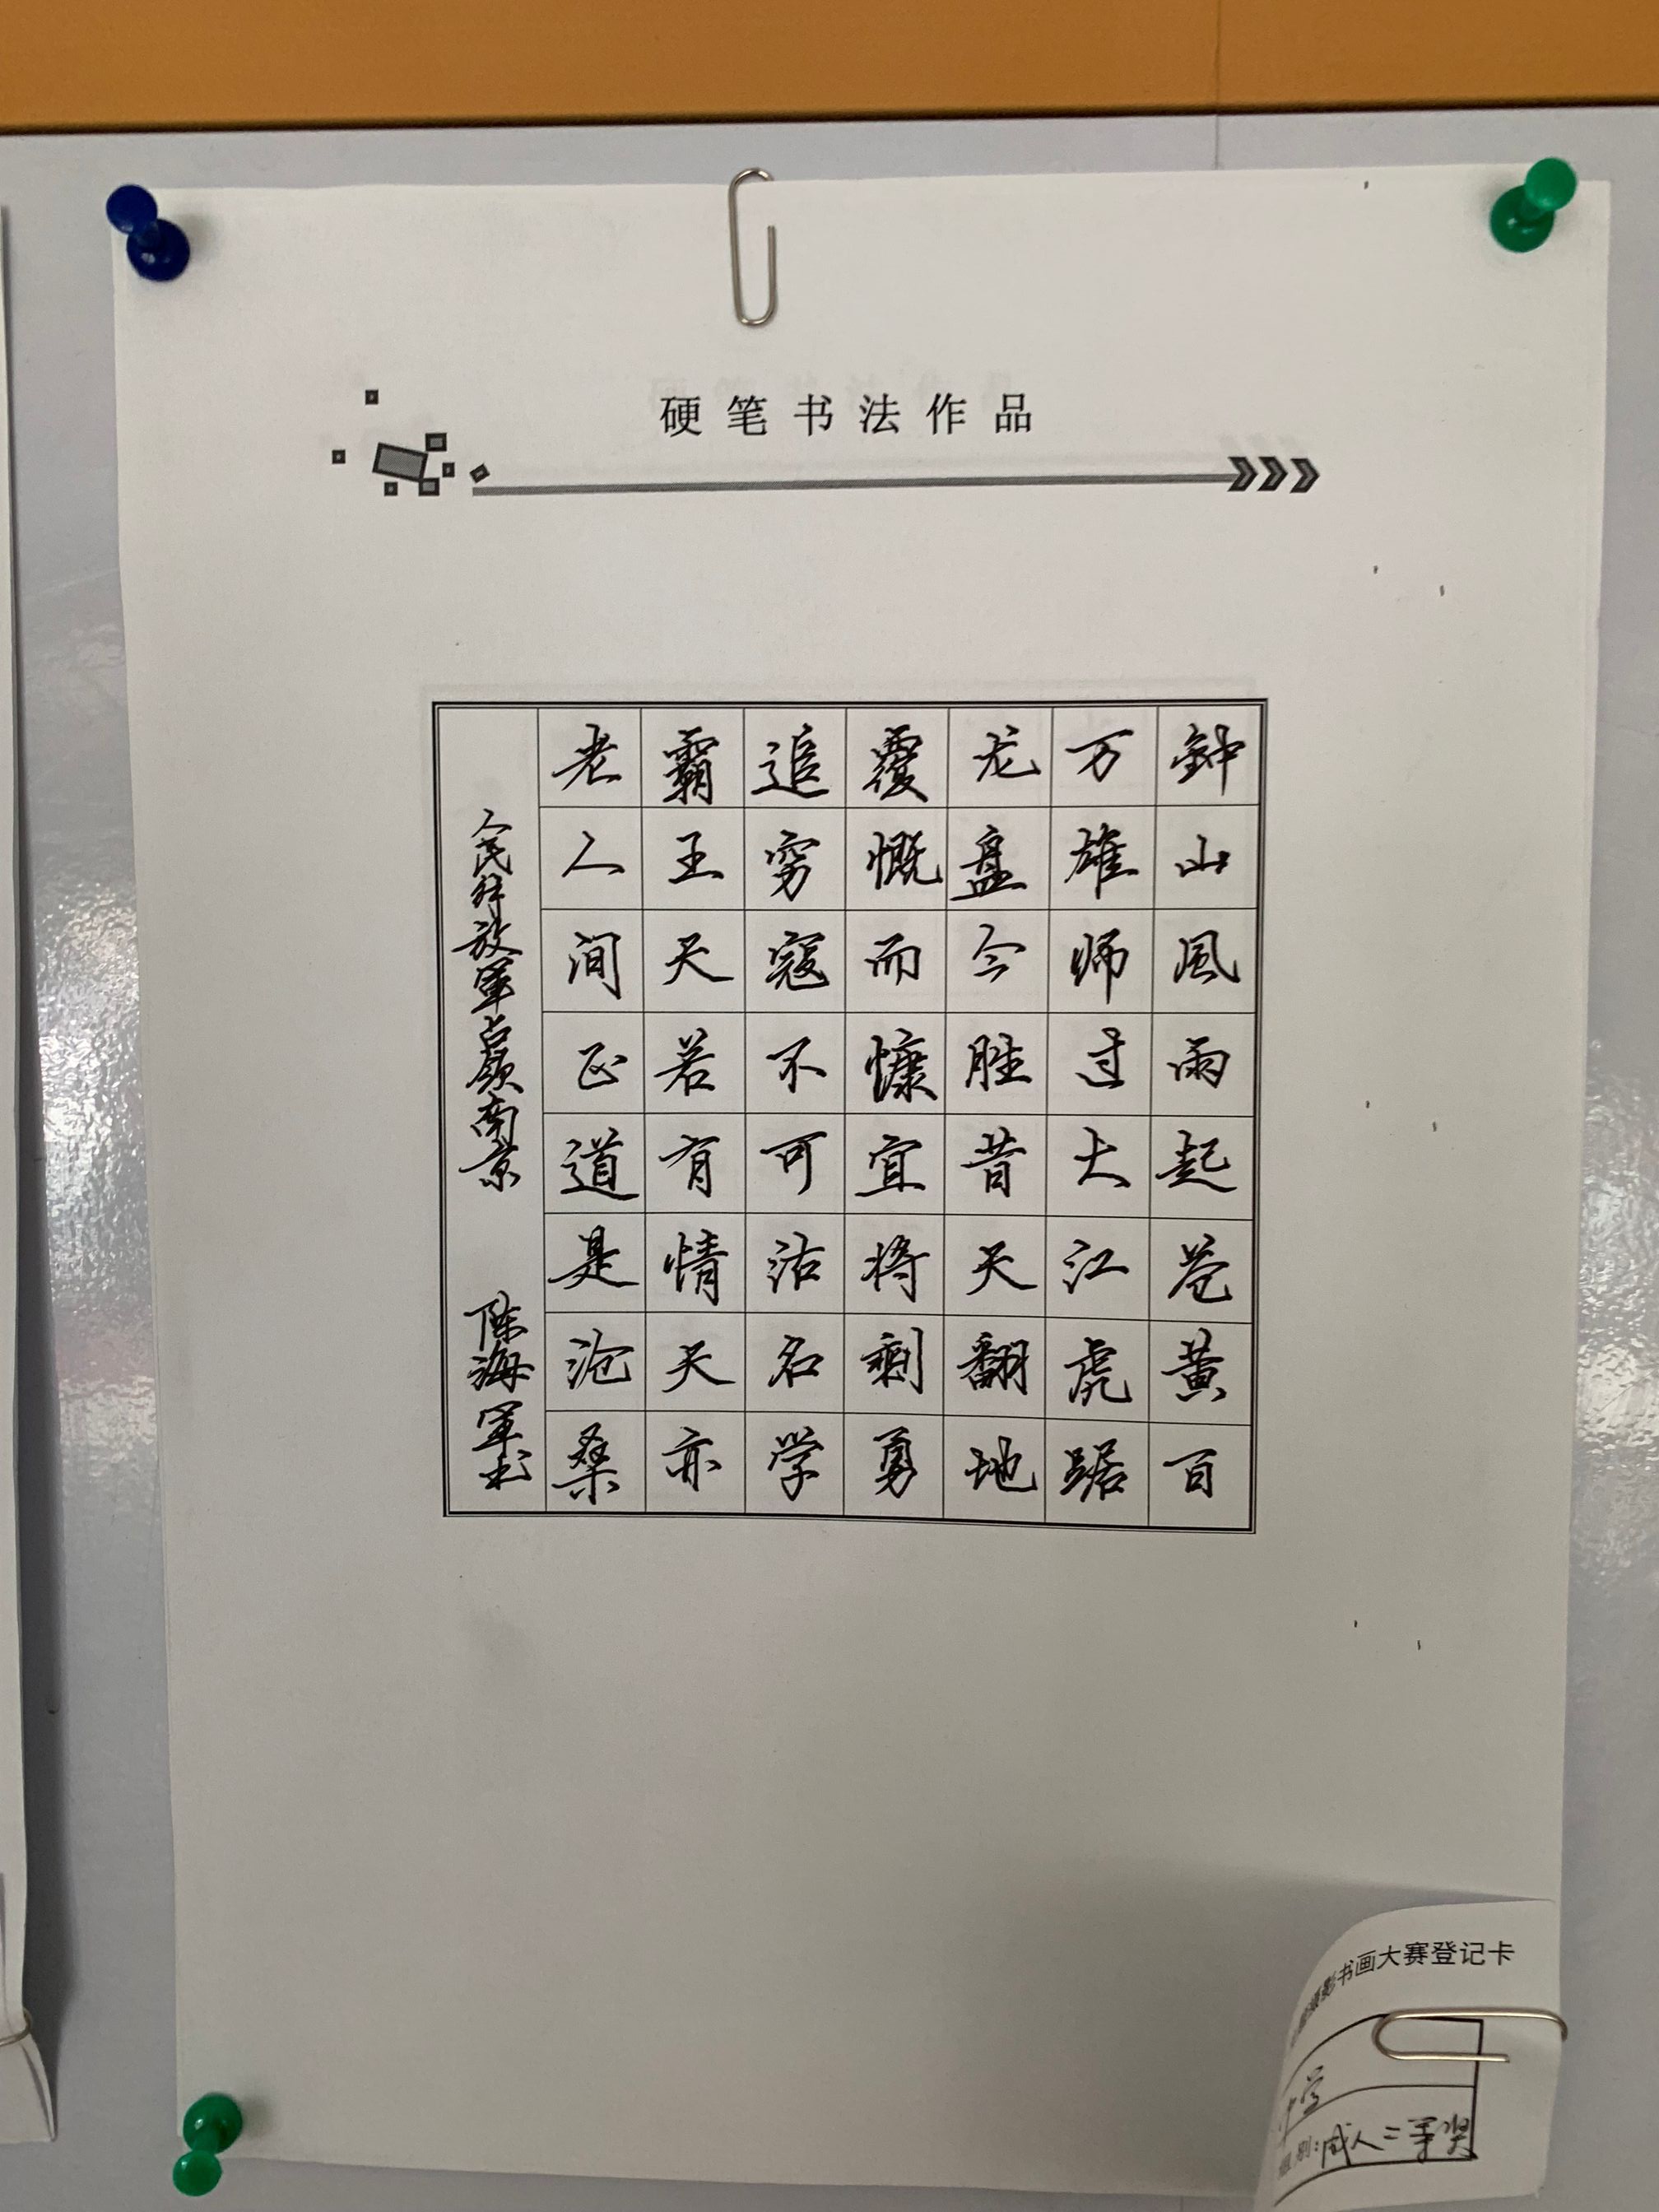 硬笔书法作品
鈡山風雨起苍黄百
万雄师过大江虎踞
龙盘今胜昔天地翻
覆慨而慷宜将剩勇
追穷寇不可沽名学
霸王天若有情天亦
老人间正道是沧桑
人民解放军占领南京 陈海军书
摄影书画大赛登记卡
中学
组别:成人二等奖